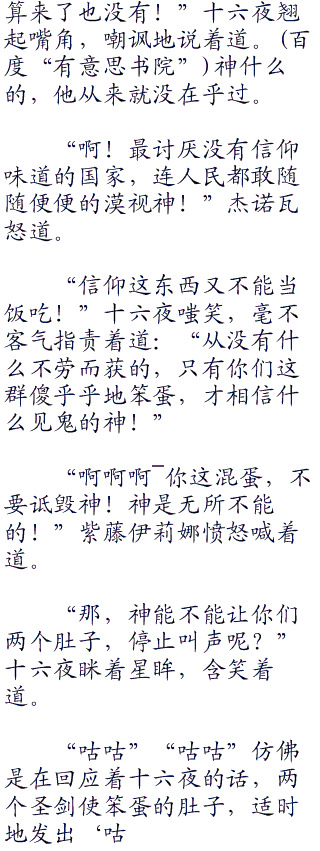 算来了也没有！”十六夜翘
起嘴角，嘲讽地说着道。(百
度“有意思书院”)神什么
的，他从来就没在乎过。
“啊！最讨厌没有信仰
味道的国家，连人民都敢随
随便便的漠视神！”杰诺瓦
怒道。
“信仰这东西又不能当
饭吃！”十六夜嗤笑，毫不
客气指责着道：“从没有什
么不劳而获的，只有你们这
群傻乎乎地笨蛋，才相信什
么见鬼的神！”
“啊啊啊¯你这混蛋，不
要诋毁神！神是无所不能
的！”紫藤伊莉娜愤怒喊着
道。
“那，神能不能让你们
两个肚子，停止叫声呢？”
十六夜眯着星眸，含笑着
道。
“咕咕”“咕咕”仿佛
是在回应着十六夜的话，两
个圣剑使笨蛋的肚子，适时
地发出‘咕